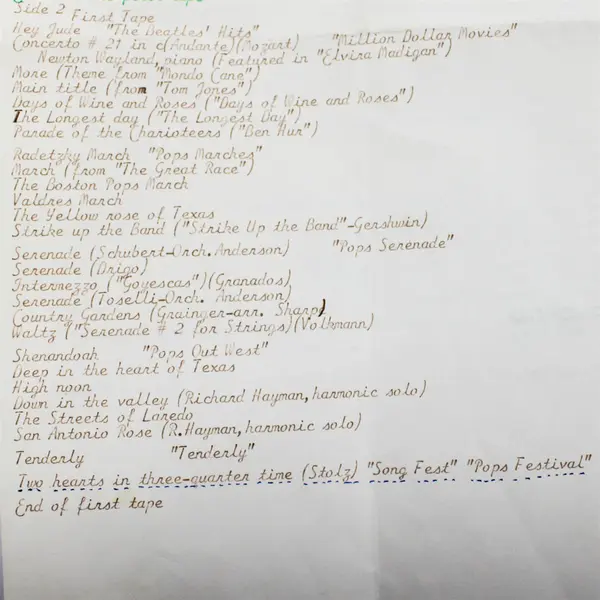 Side 2 First Tape
Hey Jude "The Beatles' Hits"
Concerto # 21 in c(Andante)(Mozart) "Million Dollar Movies"
Newton Wayland, piano (Featured in "Elvira Madigan")
More (Theme from "Mondo Cane")
Main title (from "Tom Jones")
Days of Wine and Roses ("Days of Wine and Roses")
The Longest day ("The Longest Day")
Parade of the Charioteers ("Ben Hur")
Radetzky March "Pops Marches"
March (from "The Great Race")
The Boston Pops March
Valdres March
The Yellow rose of Texas
Strike up the Band ("Strike Up the Band"-Gershwin)
Serenade (Schubert-Orch. Anderson) "Pops Serenade"
Serenade (Drigo)
Intermezzo ("Goyescas")(Granados)
Serenade (Toselli-Orch. Anderson)
Country Gardens (Grainger-arr. Sharp)
Waltz ("Serenade # 2 for Strings)(Volkmann)
Shenandoah "Pops Out West"
Deep in the heart of Texas
High noon
Down in the valley (Richard Hayman, harmonic solo)
The Streets of Laredo
San Antonio Rose (R. Hayman, harmonic solo)
Tenderly "Tenderly"
Two hearts in three-quarter time (Stolz) "Song Fest" "Pops Festival"
End of first tape